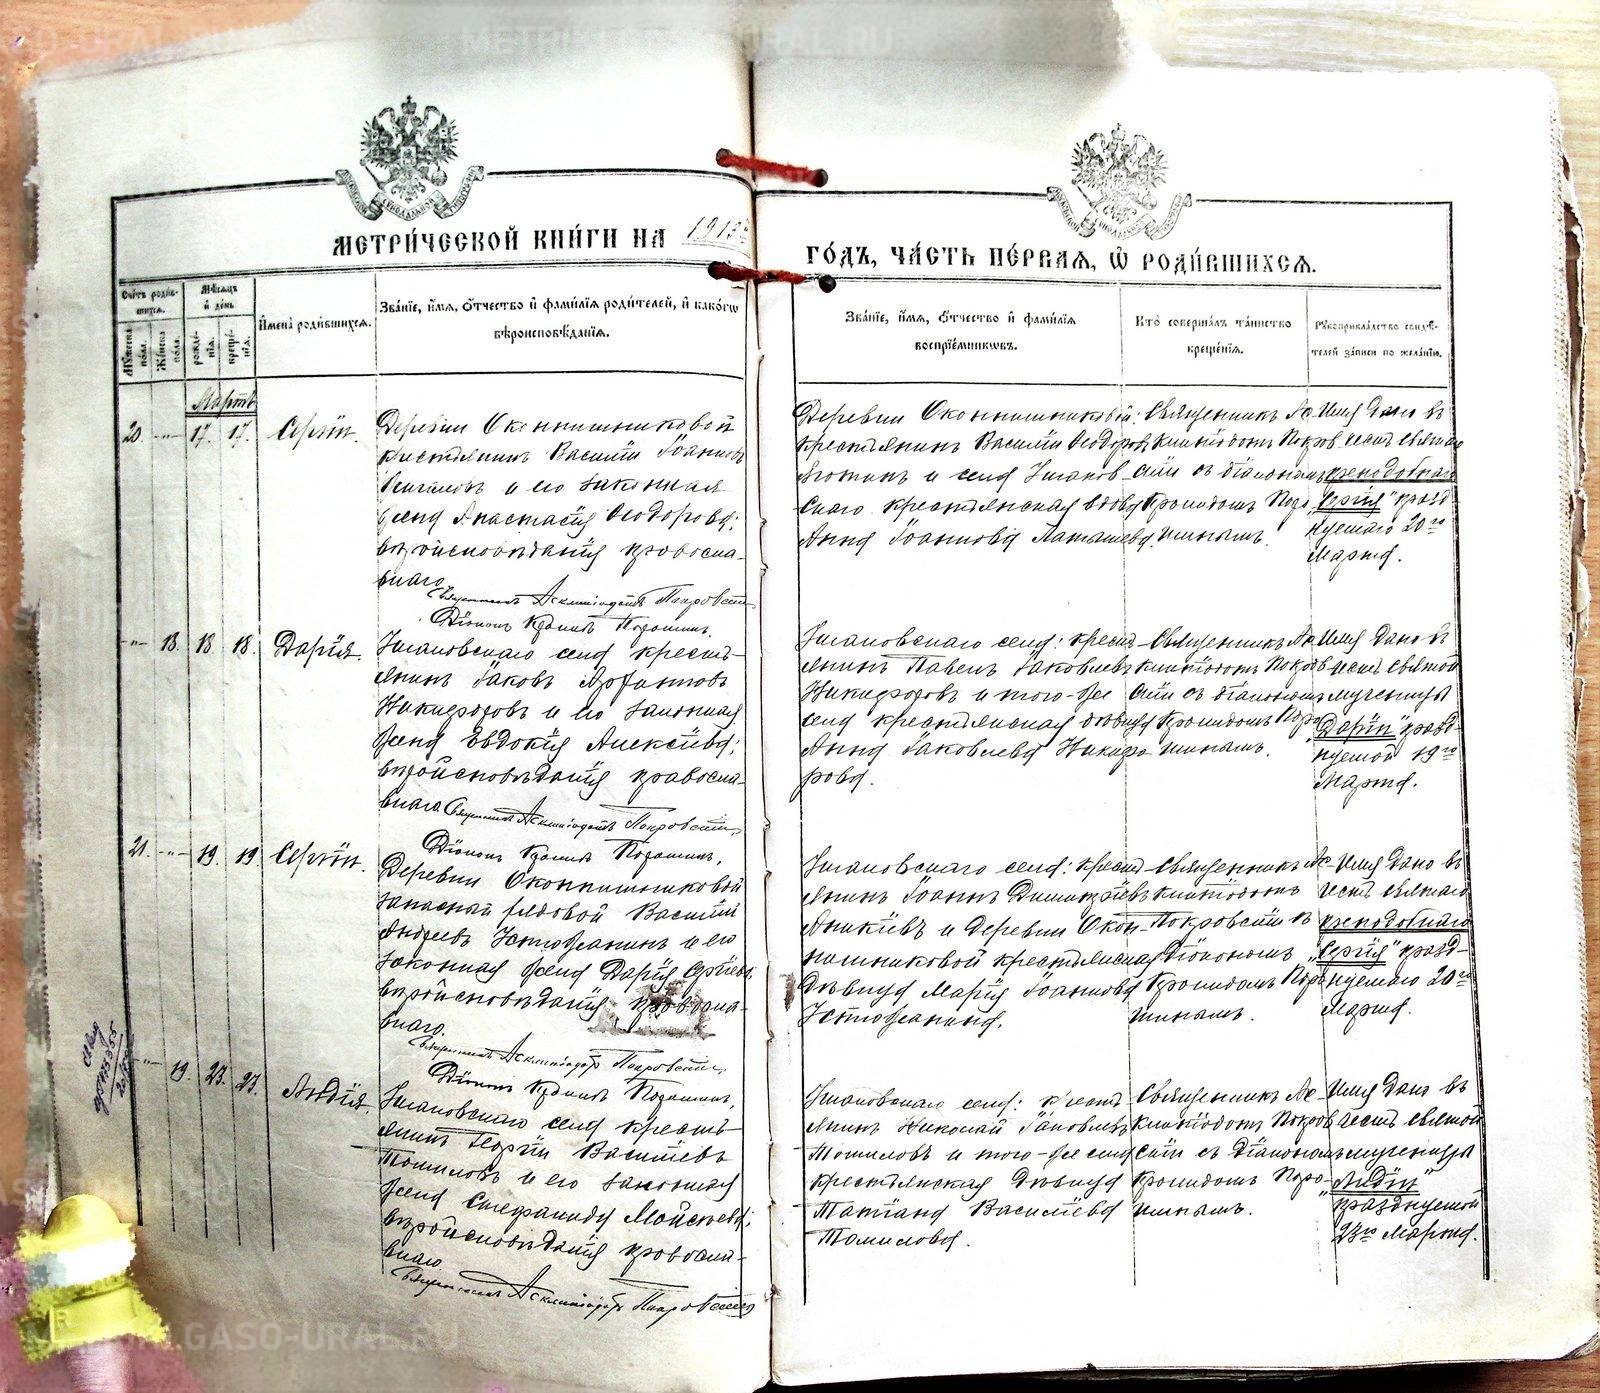 METRIKI.GASO-URAL.RU
МЕТРИ́ЧЕСКОЙ КНИ́ГИ НА 1913й
ГО́ДЪ, ЧА́СТЬ ПЕ́РВАЯ, Ѡ РОДИ́ВШИХСЯ.
Счетъ роди́вшихся.
Му́жеска по́ла.
Же́нска по́ла.
Мѣ́сяцъ и де́нь
рожде́нїя.
креще́нїя.
И҆мена̀ роди́вшихся.
Зва́нїе, и҆́мя, ѻ҆́тчество и҆ фами́лїя роди́телей, и҆ како́гѡ
вѣроисповѣ́данїя.
Зва́нїе, и҆́мя, ѻ҆́тчество и҆ фами́лїя
воспрїе́мникѡвъ.
Кто̀ соверша́лъ та́инство
креще́нїя.
Рꙋкоприкла́дство свидѣ́-
телей за́писи по жела́нїю.
Мартъ
20. -"- 17. 17. Сергій.
Деревни Оконнишниковой
крестьянинъ Василій Іоанновъ
и его законная
жена Анастасія Ѳеодорова;
вѣроисповѣданія православ-
наго.
Священникъ Асклипіодотъ Покровскій
Діаконъ Порошинъ.
Деревни Оконнишниковой:
крестьянинъ Василій Ѳеодоровъ
и села Ушаков-
скаго крестьянская вдова
Анна Іоаннова
Священникъ Ас-
клипіодотъ Покров-
скій съ діакономъ
Поро-
шинымъ.
Имя дано въ
честь святаго
преподобнаго
"Сергія" празд-
нуемаго 20го
Марта.
-"- 18. 18. 18. Дарія.
Ушаковскаго села кресть-
янинъ Іаковъ
Никифоровъ и его законная
жена Евдокія Алексѣева;
вѣроисповѣданія православ-
наго.
Священникъ Асклипіодотъ Покровскій,
Діаконъ Порошинъ,
Ушаковскаго села: кресть-
янинъ Павелъ Іаковлевъ
Никифоровъ и того-же
села крестьянская дѣвица
Анна Іаковлева Никифо-
рова.
Священникъ Ас-
клипіодотъ Покров-
скій съ діакономъ
Поро-
шинымъ.
Имя дано въ
честь святой
мученицы
"Даріи" празд-
нуемой 19го
Марта.
21. -"- 19. 19 Сергій.
Деревни Оконнишниковой
запасный рядовой Василій
Андреевъ Устюжанинъ и его
законная жена Дарія
вѣроисповѣданія православ-
наго.
Священникъ Асклипіодотъ Покровскій,
Діаконъ Порошинъ,
Ушаковскаго села: кресть-
янинъ Іоаннъ Димитріевъ
Аникіевъ и деревни Окон-
нишниковой крестьянская
дѣвица Марія Іоаннова
Устюжанина.
Священникъ Ас-
клипіодотъ
Покровскій съ
Діакономъ
Поро-
шинымъ.
Имя дано въ
честь святаго
преподобнаго
"Сергія" празд-
нуемаго 20го
Марта.
-"- 19. 23. 23. Лидія
Ушаковскаго села кресть-
янинъ Георгій Василіевъ
Томиловъ и его законная
жена Стефанида Моисеева;
вѣроисповѣданія православ-
наго.
Священникъ Асклипіодотъ Покровскій
Ушаковскаго села: кресть-
янинъ Николай Іаковлевъ
Томиловъ и того-же села
крестьянская дѣвица
Татіана Василіева
Томилова.
Священникъ Ас-
клипіодотъ Покров-
скій съ діакономъ
Поро-
шинымъ.
Имя дано въ
честь святой
мученицы
"Лидіи"
празднуемой
23го Марта.
METRIKI.GASO-URAL.RU